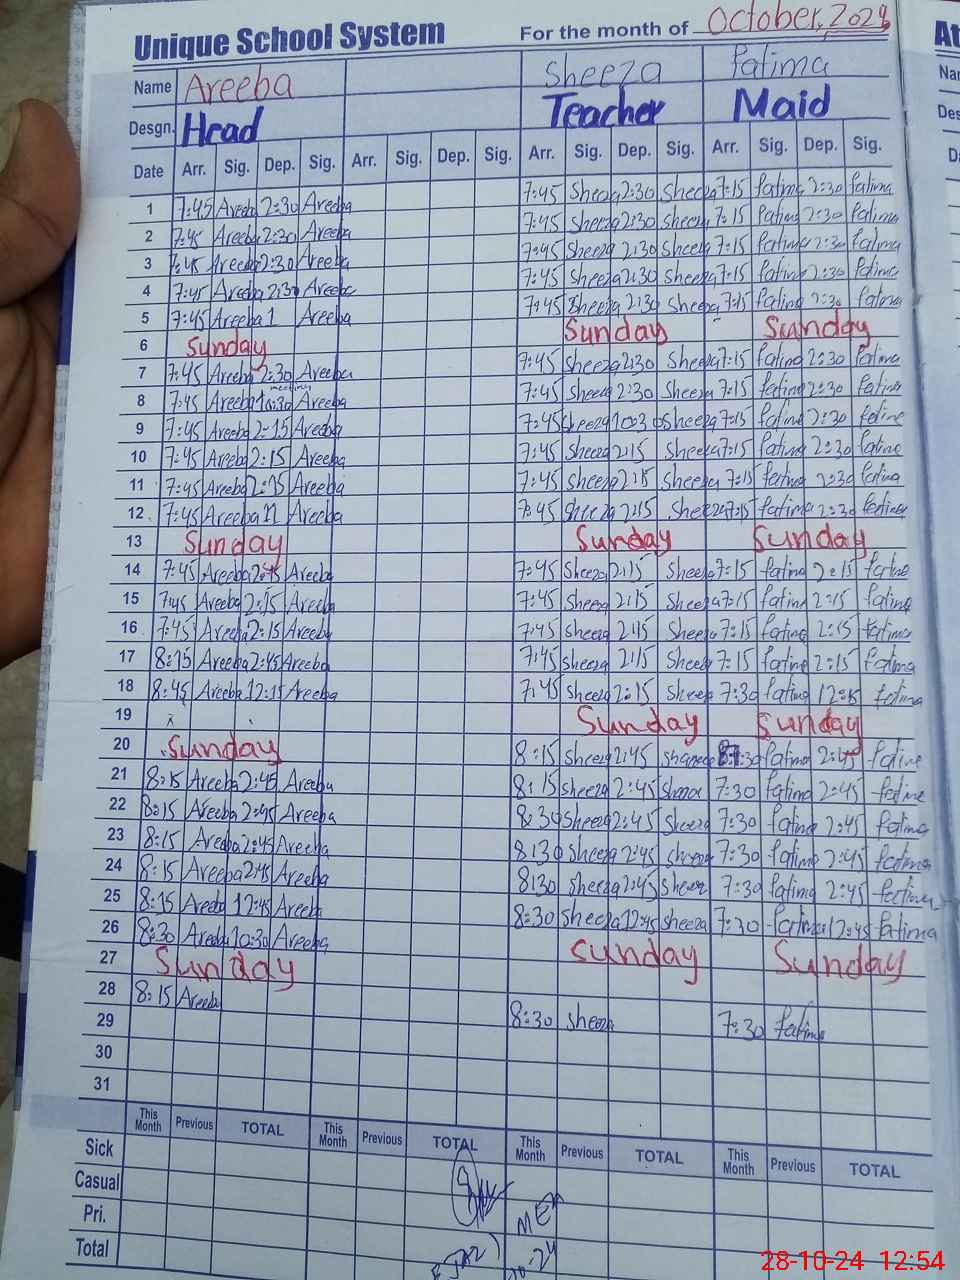 Unique School System For the month of October, 2024
Name Areeba Sheeza fatima
Desgn. Head Teacher Maid
Date Arr. Sig. Dep. Sig. Arr. Sig. Dep. Sig. Arr. Sig. Dep. Sig. Arr. Sig. Dep. Sig.
1 7:45 Areeba 2:30 Areeba 7:45 Sheeza 2:30 Sheeza 7:15 fatima 2:30 fatima
2 7:45 Areeba 2:30 Areeba 7:45 Sheeza 2:30 Sheeza 7:15 fatima 2:30 fatima
3 7:45 Areeba 2:30 Areeba 7:45 Sheeza 2:30 Sheeza 7:15 fatima 2:30 fatima
4 7:45 Areeba 2:30 Areeba 7:45 Sheeza 2:30 Sheeza 7:15 fatima 2:30 fatima
5 7:45 Areeba 1 Areeba 7:45 Sheeza 2:30 Sheeza 7:15 fatima 2:30 fatima
6 Sunday Sunday Sunday
7 7:45 Areeba 2:30 Areeba 7:45 Sheeza 2:30 Sheeza 7:15 fatima 2:30 fatima
8 7:45 Areeba 10:30 Areeba 7:45 Sheeza 2:30 Sheeza 7:15 fatima 2:30 fatima
9 7:45 Areeba 2:15 Areeba 7:45 Sheeza 10:30 Sheeza 7:15 fatima 2:30 fatima
10 7:45 Areeba 2:15 Areeba 7:45 Sheeza 2:15 Sheeza 7:15 fatima 2:30 fatima
11 7:45 Areeba 2:15 Areeba 7:45 Sheeza 2:15 Sheeza 7:15 fatima 2:30 fatima
12 7:45 Areeba Areeba 7:45 Sheeza 2:15 Sheeza 7:15 fatima 2:30 fatima
13 Sunday Sunday Sunday
14 7:45 Areeba Areeba 7:45 Sheeza 2:15 Sheeza 7:15 fatima 2:15 fatima
15 7:45 Areeba 2:15 Areeba 7:45 Sheeza 2:15 Sheeza 7:15 fatima 2:15 fatima
16 7:45 Areeba 2:15 Areeba 7:45 Sheeza 2:15 Sheeza 7:15 fatima 2:15 fatima
17 8:15 Areeba 2:45 Areeba 7:45 Sheeza 2:15 Sheeza 7:15 fatima 2:15 fatima
18 8:45 Areeba 12:15 Areeba 7:45 Sheeza 2:15 Sheeza 7:30 fatima fatima
19 Sunday Sunday
20 Sunday 8:15 Sheeza 2:45 fatima 2:45 fatima
21 8:15 Areeba 2:45 Areeba 8:15 Sheeza 2:45 Sheeza 7:30 fatima 2:45 fatima
22 8:15 Areeba 2:45 Areeba 8:30 Sheeza 2:45 Sheeza 7:30 fatima 2:45 fatima
23 8:15 Areeba 2:45 Areeba 8:30 Sheeza 2:45 Sheeza 7:30 fatima 2:45 fatima
24 8:15 Areeba 2:45 Areeba 8:30 Sheeza 2:45 Sheeza 7:30 fatima 2:45 fatima
25 8:15 Areeba 12:45 Areeba 8:30 Sheeza 12:45 Sheeza 7:30 fatima 12:45 fatima
26 8:30 Areeba 10:30 Areeba
27 Sunday Sunday Sunday
28 8:15 Areeba
29 8:30 Sheeza 7:30 fatima
30
31
This Month Previous TOTAL This Month Previous TOTAL This Month Previous TOTAL This Month Previous TOTAL
Sick
Casual
Pri.
Total
28-10-24 12:54